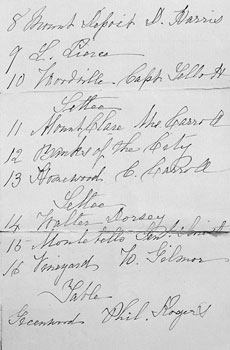 8 Mount Depoit D. Harris
9 L. Pierce
10 Woodville. Capt
Settee
11 Mount Clare Mrs Carroll
12 Banks of the City
13 Homewood C. Carroll
Settee
14 Walter Dorsey
15 Montebello Smith
16 Vineyard W. Gilmor
Table
Greenwood Phil. Rogers